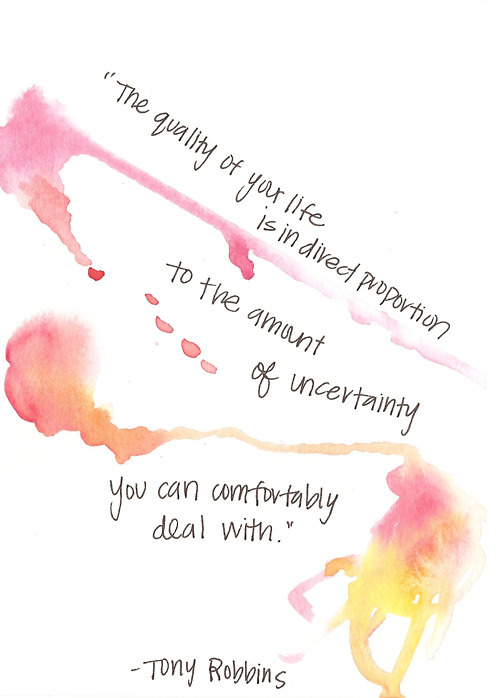 "The quality of your life
is in direct proportion
to the amount
of uncertainty
you can comfortably
deal with."
-Tony Robbins